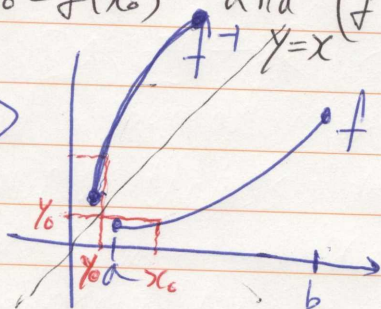 y₀ = f(x₀) and (f
f⁻¹
y = x
f
y₀
y₀ a x₀ b